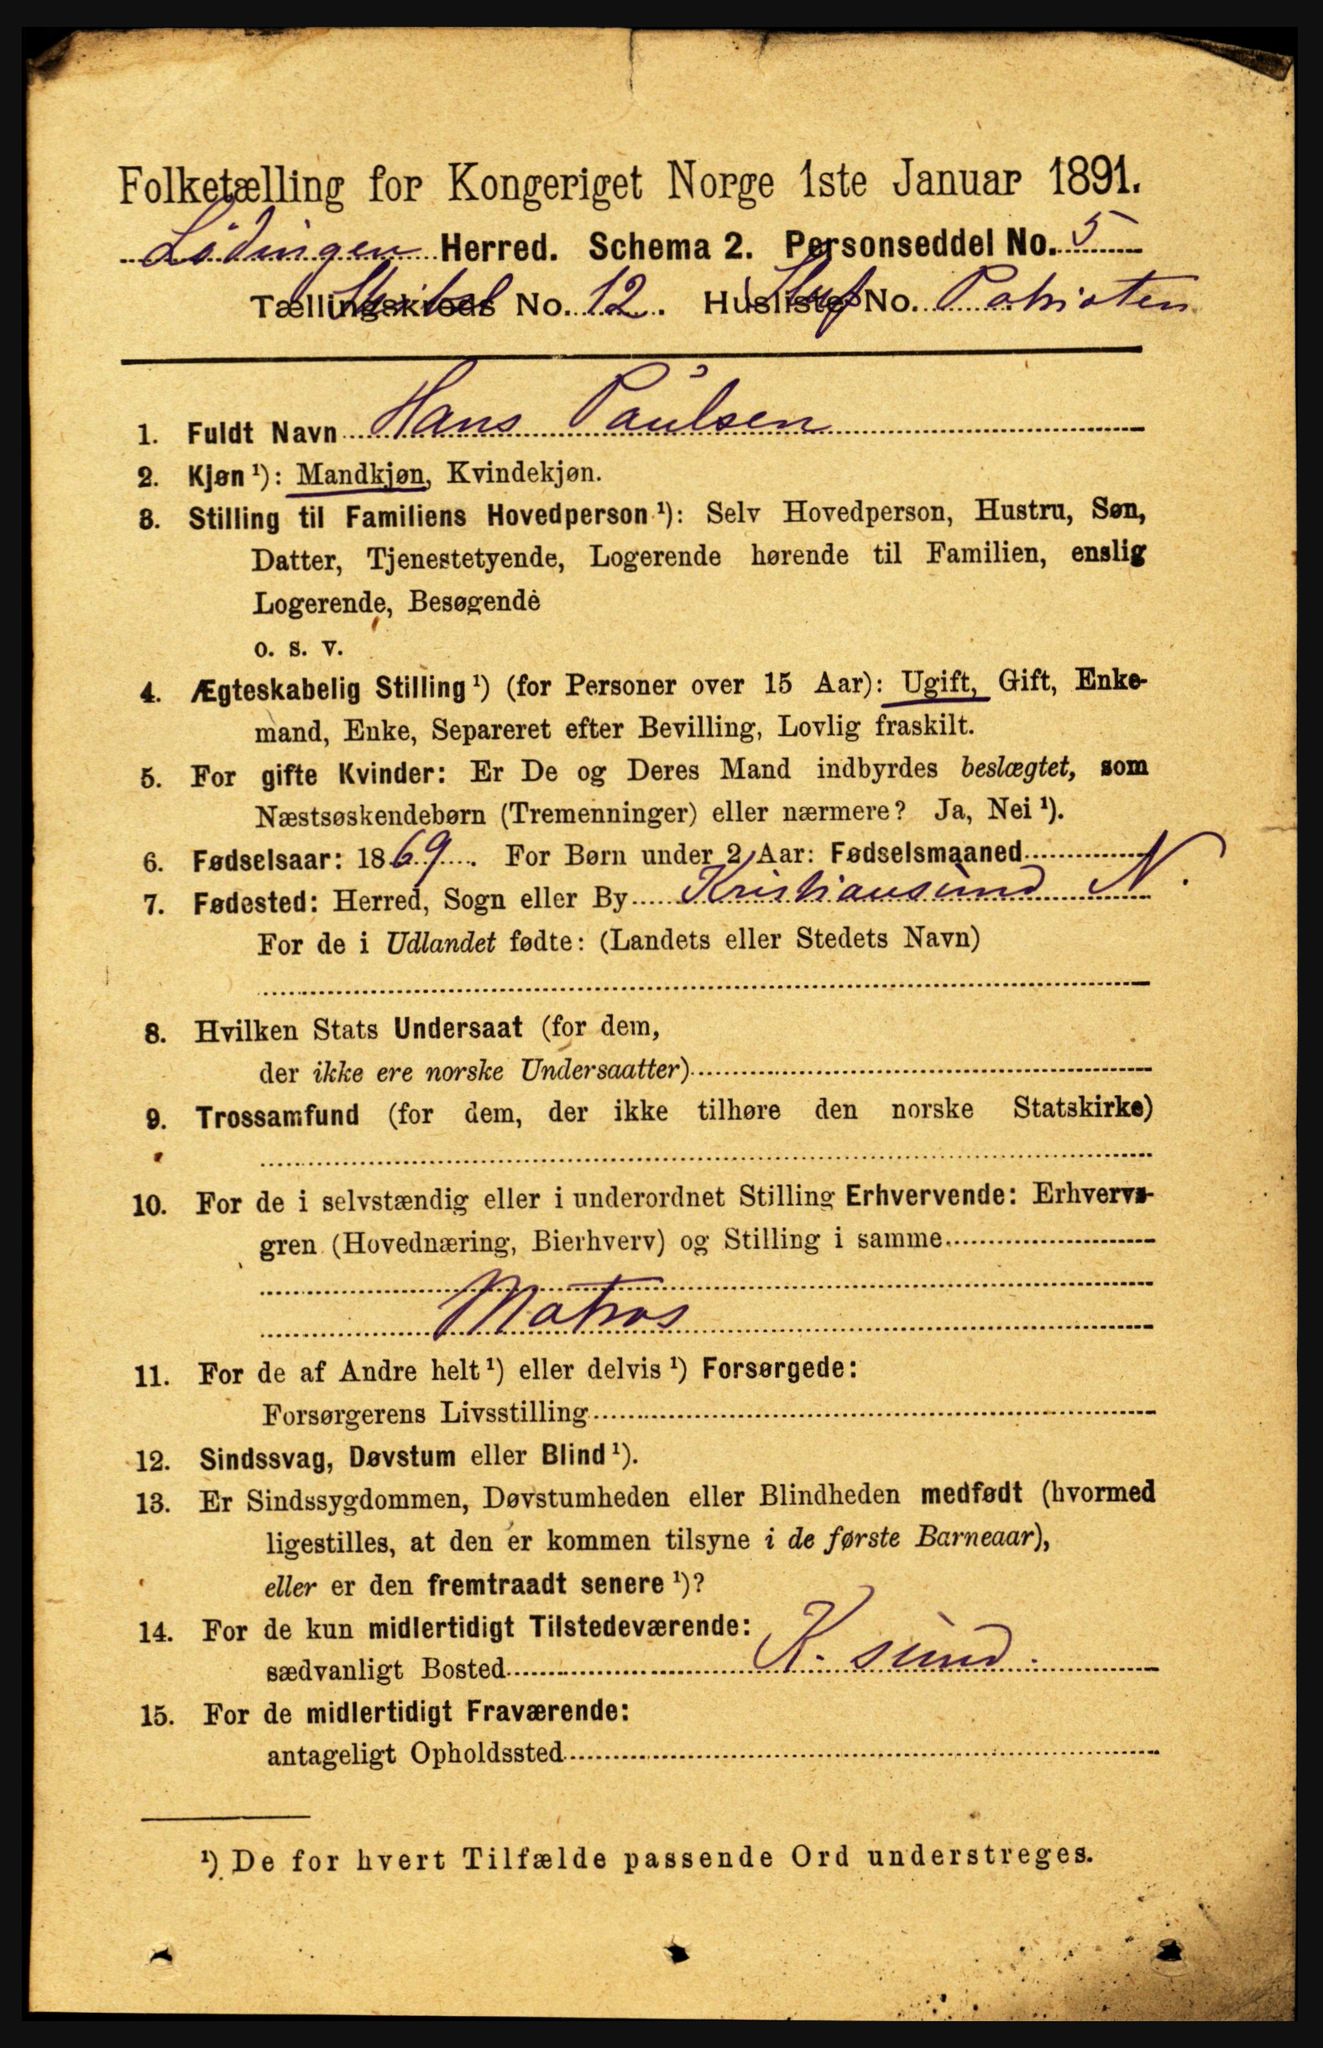 Folketælling for Kongeriget Norge 1ste Januar 1891.
Lödingen Herred. Schema 2. Personseddel No. 5
Tællingskreds No. 12. Husliste No. Patrioten
1. Fuldt Navn Hans Paulsen
2. Kjøn ¹): Mandkjøn, Kvindekjøn.
3. Stilling til Familiens Hovedperson ¹): Selv Hovedperson, Hustru, Søn,
Datter, Tjenestetyende, Logerende hørende til Familien, enslig
Logerende, Besøgende
o. s. v.
4. Ægteskabelig Stilling ¹) (for Personer over 15 Aar): Ugift, Gift, Enke-
mand, Enke, Separeret efter Bevilling, Lovlig fraskilt.
5. For gifte Kvinder: Er De og Deres Mand indbyrdes beslægtet, som
Næstsøskendebørn (Tremenninger) eller nærmere? Ja, Nei ¹).
6. Fødselsaar: 1869. For Børn under 2 Aar: Fødselsmaaned
7. Fødested: Herred, Sogn eller By Kristiansund N.
For de i Udlandet fødte: (Landets eller Stedets Navn)
8. Hvilken Stats Undersaat (for dem,
der ikke ere norske Undersaatter)
9. Trossamfund (for dem, der ikke tilhøre den norske Statskirke)
10. For de i selvstændig eller i underordnet Stilling Erhvervende: Erhvervs-
gren (Hovednæring, Bierhverv) og Stilling i samme
Matros
11. For de af Andre helt ¹) eller delvis ¹) Forsørgede:
Forsørgerens Livsstilling
12. Sindssvag, Døvstum eller Blind ¹).
13. Er Sindssygdommen, Døvstumheden eller Blindheden medfødt (hvormed
ligestilles, at den er kommen tilsyne i de første Barneaar),
eller er den fremtraadt senere ¹)?
14. For de kun midlertidigt Tilstedeværende:
sædvanligt Bosted K. sund.
15. For de midlertidigt Fraværende:
antageligt Opholdssted
¹) De for hvert Tilfælde passende Ord understreges.